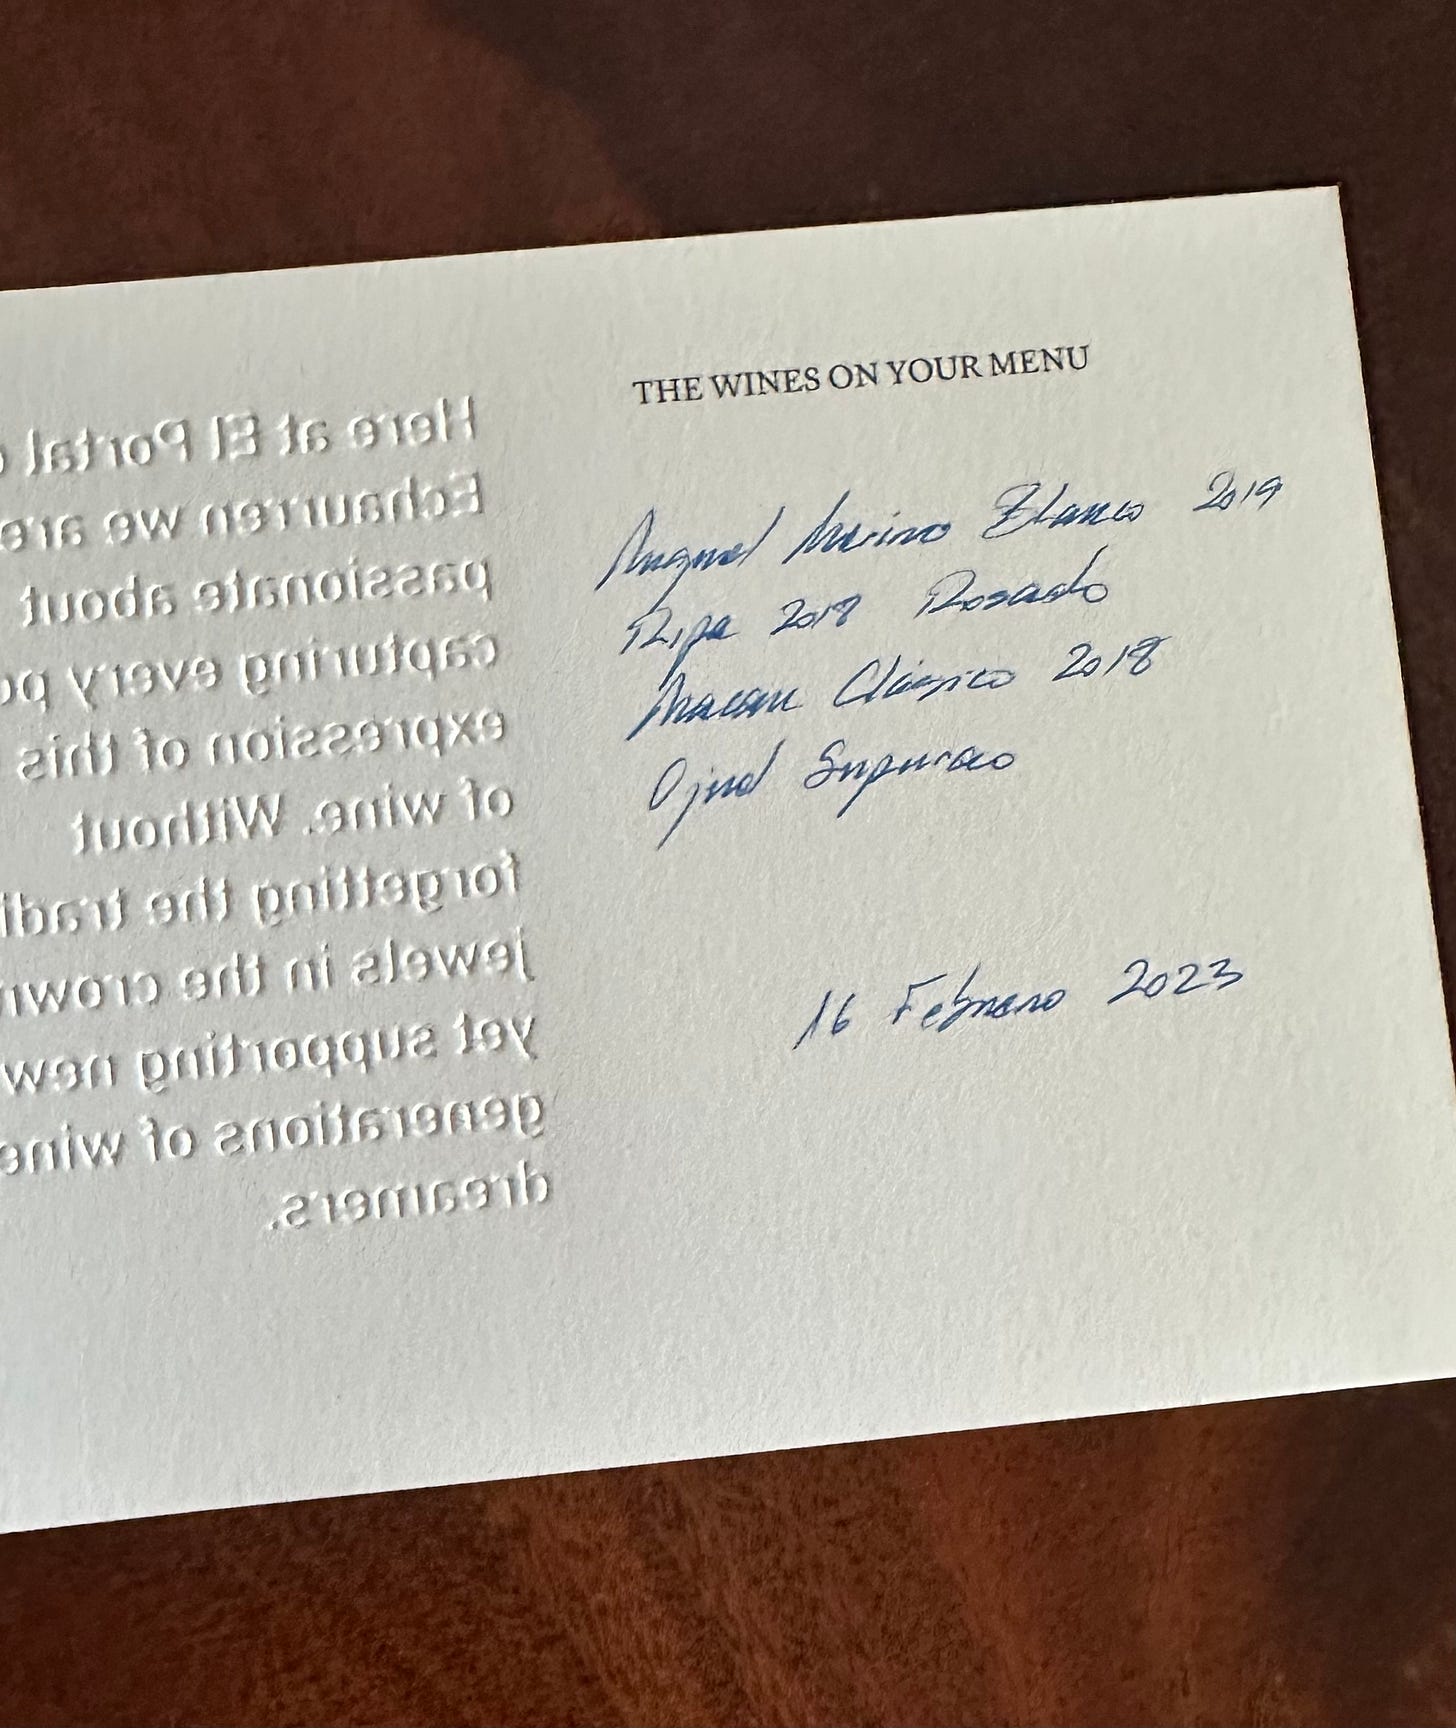 Here at El Portal
Echaurren we are
passionate about
capturing every
expression of this
of wine. Without
forgetting the
jewels in the crown
yet supporting new
generations of wine
dreamers.
THE WINES ON YOUR MENU
Miguel Merino Blanco 2019
Ripa 2018 Rosado
Macan Clásico 2018
Ojuel Supurao
16 Febrero 2023